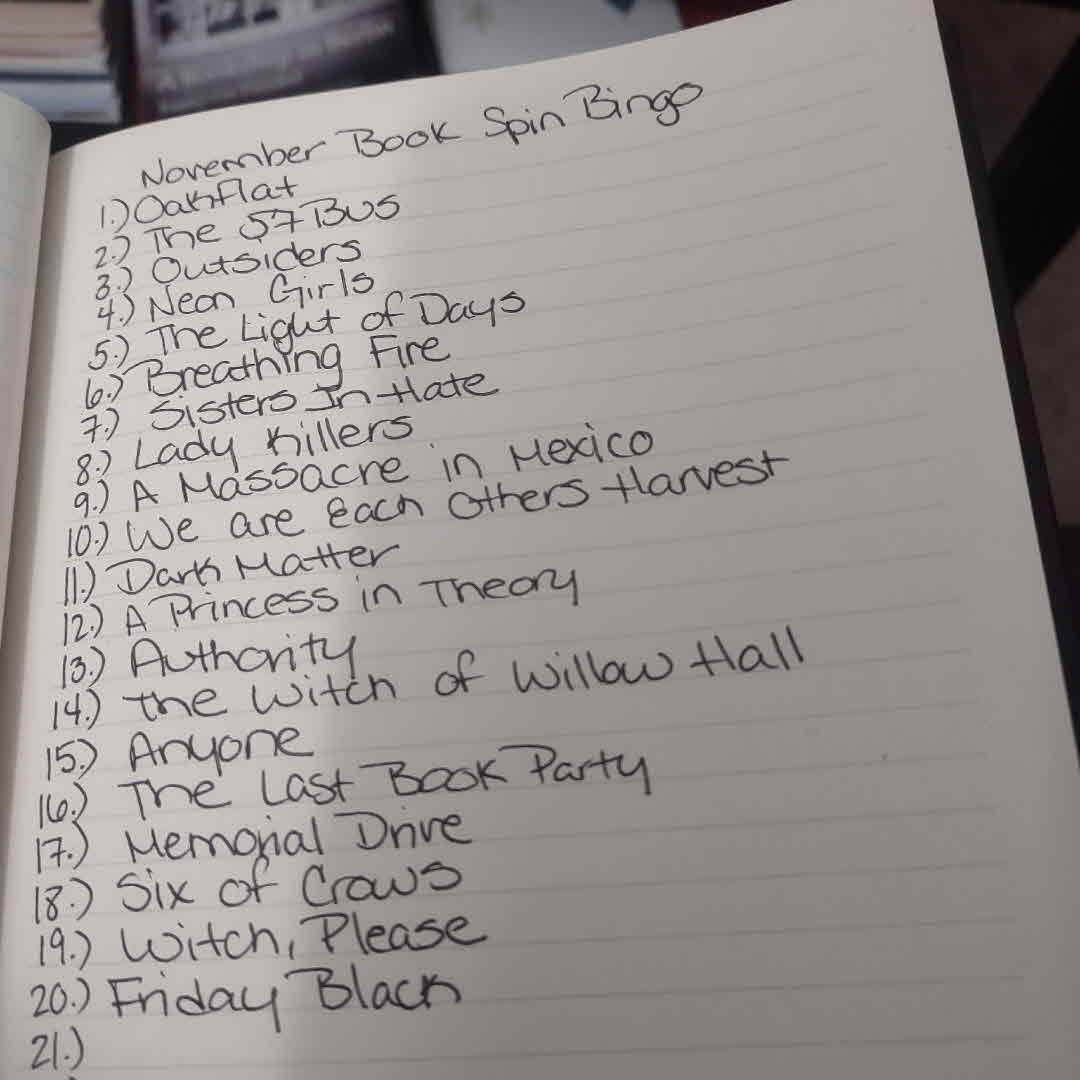 November Book Spin Bingo
1.) Oakflat
2.) The 57 Bus
3.) Outsiders
4.) Neon Girls
5.) The Light of Days
6.) Breathing Fire
7.) Sisters In Hate
8.) Lady Killers
9.) A Massacre in Mexico
10.) We are Each Others Harvest
11.) Dark Matter
12.) A Princess in Theory
13.) Authority
14.) the Witch of Willow Hall
15.) Anyone
16.) The Last Book Party
17.) Memorial Drive
18.) Six of Crows
19.) Witch, Please
20.) Friday Black
21.)